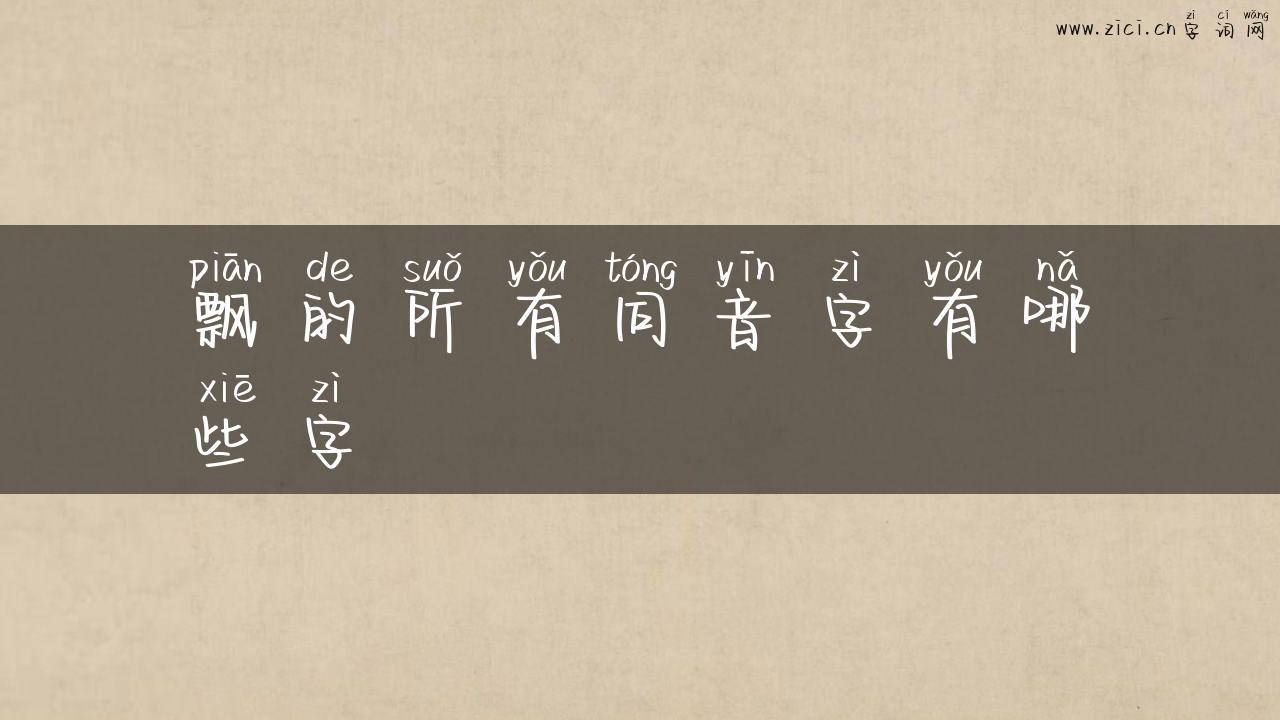 zì cí wǎng
www.zici.cn 字词网
piān de suǒ yǒu tóng yīn zì yǒu nǎ
飘的所有同音字有哪
xiē zì
些字